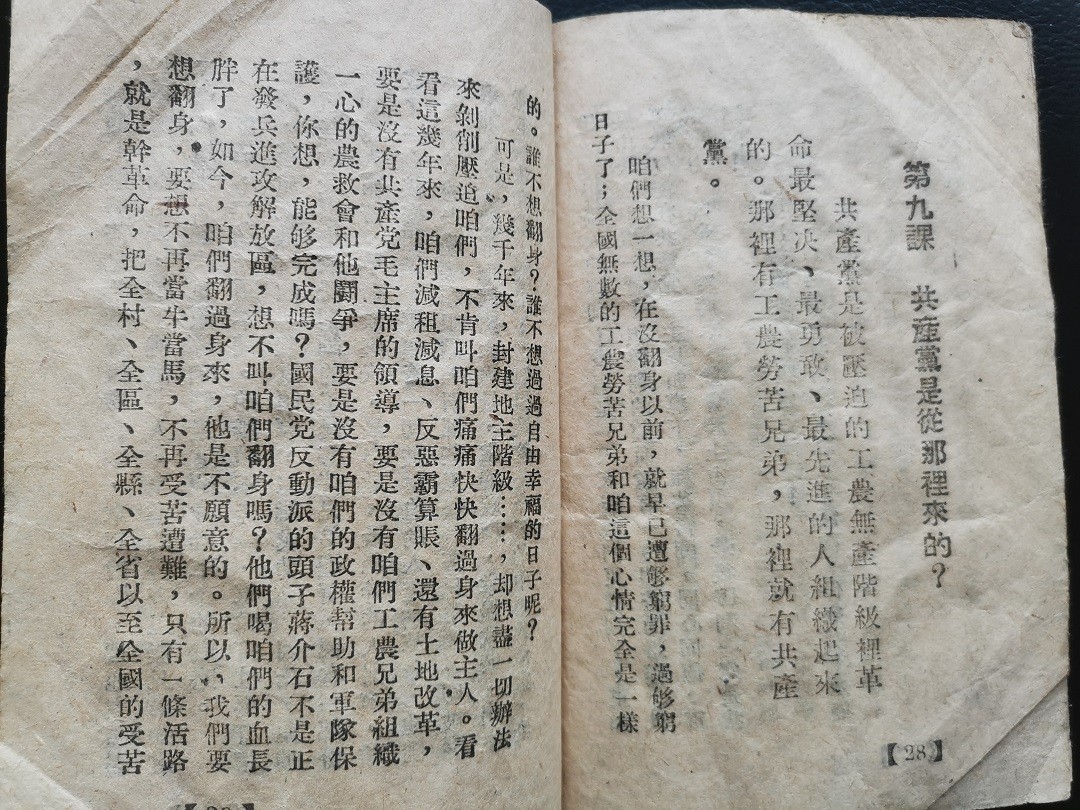 第九課　共產黨是從那裡來的？
共產黨是被壓迫的工農無產階級裡革
命最堅决、最勇敢、最先進的人組織起來
的。那裡有工農勞苦兄弟，那裡就有共產
黨。
咱們想一想，在沒翻身以前，就早已遭够窮罪，過够窮
日子了；全國無數的工農勞苦兄弟和咱這個心情完全是一樣
【28】
的。誰不想翻身？誰不想過過自由幸福的日子呢？
可是，幾千年來，封建地主階級……，却想盡一切辦法
來剝削壓迫咱們，不肯叫咱們痛痛快快翻過身來做主人。看
看這幾年來，咱們減租減息、反惡霸算賬、還有土地改革，
要是沒有共產党毛主席的領導，要是沒有咱們工農兄弟組織
一心的農救會和他鬪爭，要是沒有咱們的政權幫助和軍隊保
護，你想，能够完成嗎？國民党反動派的頭子蔣介石不是正
在發兵進攻解放區，想不叫咱們翻身嗎？他們喝咱們的血長
胖了，如今，咱們翻過身來，他是不願意的。所以，我們要
想翻身，要想不再當牛當馬，不再受苦遭難，只有一條活路
，就是幹革命，把全村、全區、全縣、全省以至全國的受苦